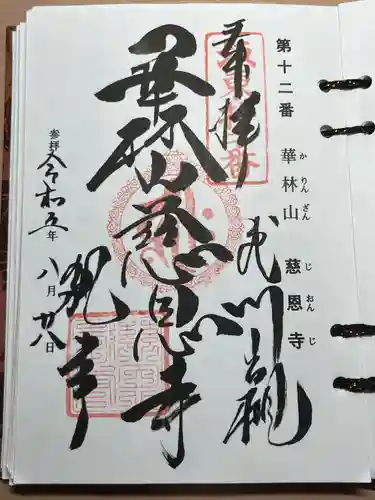 第十二番 華林山 慈恩寺
かりんざん じおんじ
奉拝
武州岩槻
華林山慈恩寺
執事
参拝 令和五年八月廿八日